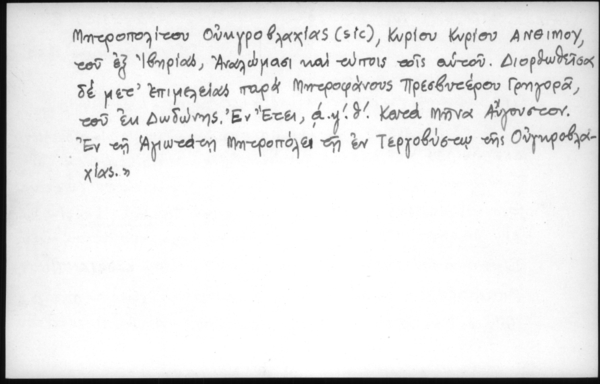 Μητροπολίτου Οὐκγροβλαχίας (sic), Κυρίου Κυρίου ΑΝΘΙΜΟΥ,
τοῦ ἐξ Ἰβηρίας, Ἀναλώμασι καὶ τύποις τοῖς αὐτοῦ. Διορθωθεῖσα
δὲ μετ' ἐπιμελείας παρὰ Μητροφάνους Πρεσβυτέρου Γρηγορᾶ,
τοῦ ἐκ Δωδώνης. Ἐν Ἔτει, ά.γ'.θ'. Κατὰ Μῆνα Αὔγουστον.
Ἐν τῇ Ἁγιωτάτῃ Μητροπόλει τῇ ἐν Τεργοβύστῳ τῆς Οὐγκροβλα-
χίας.»